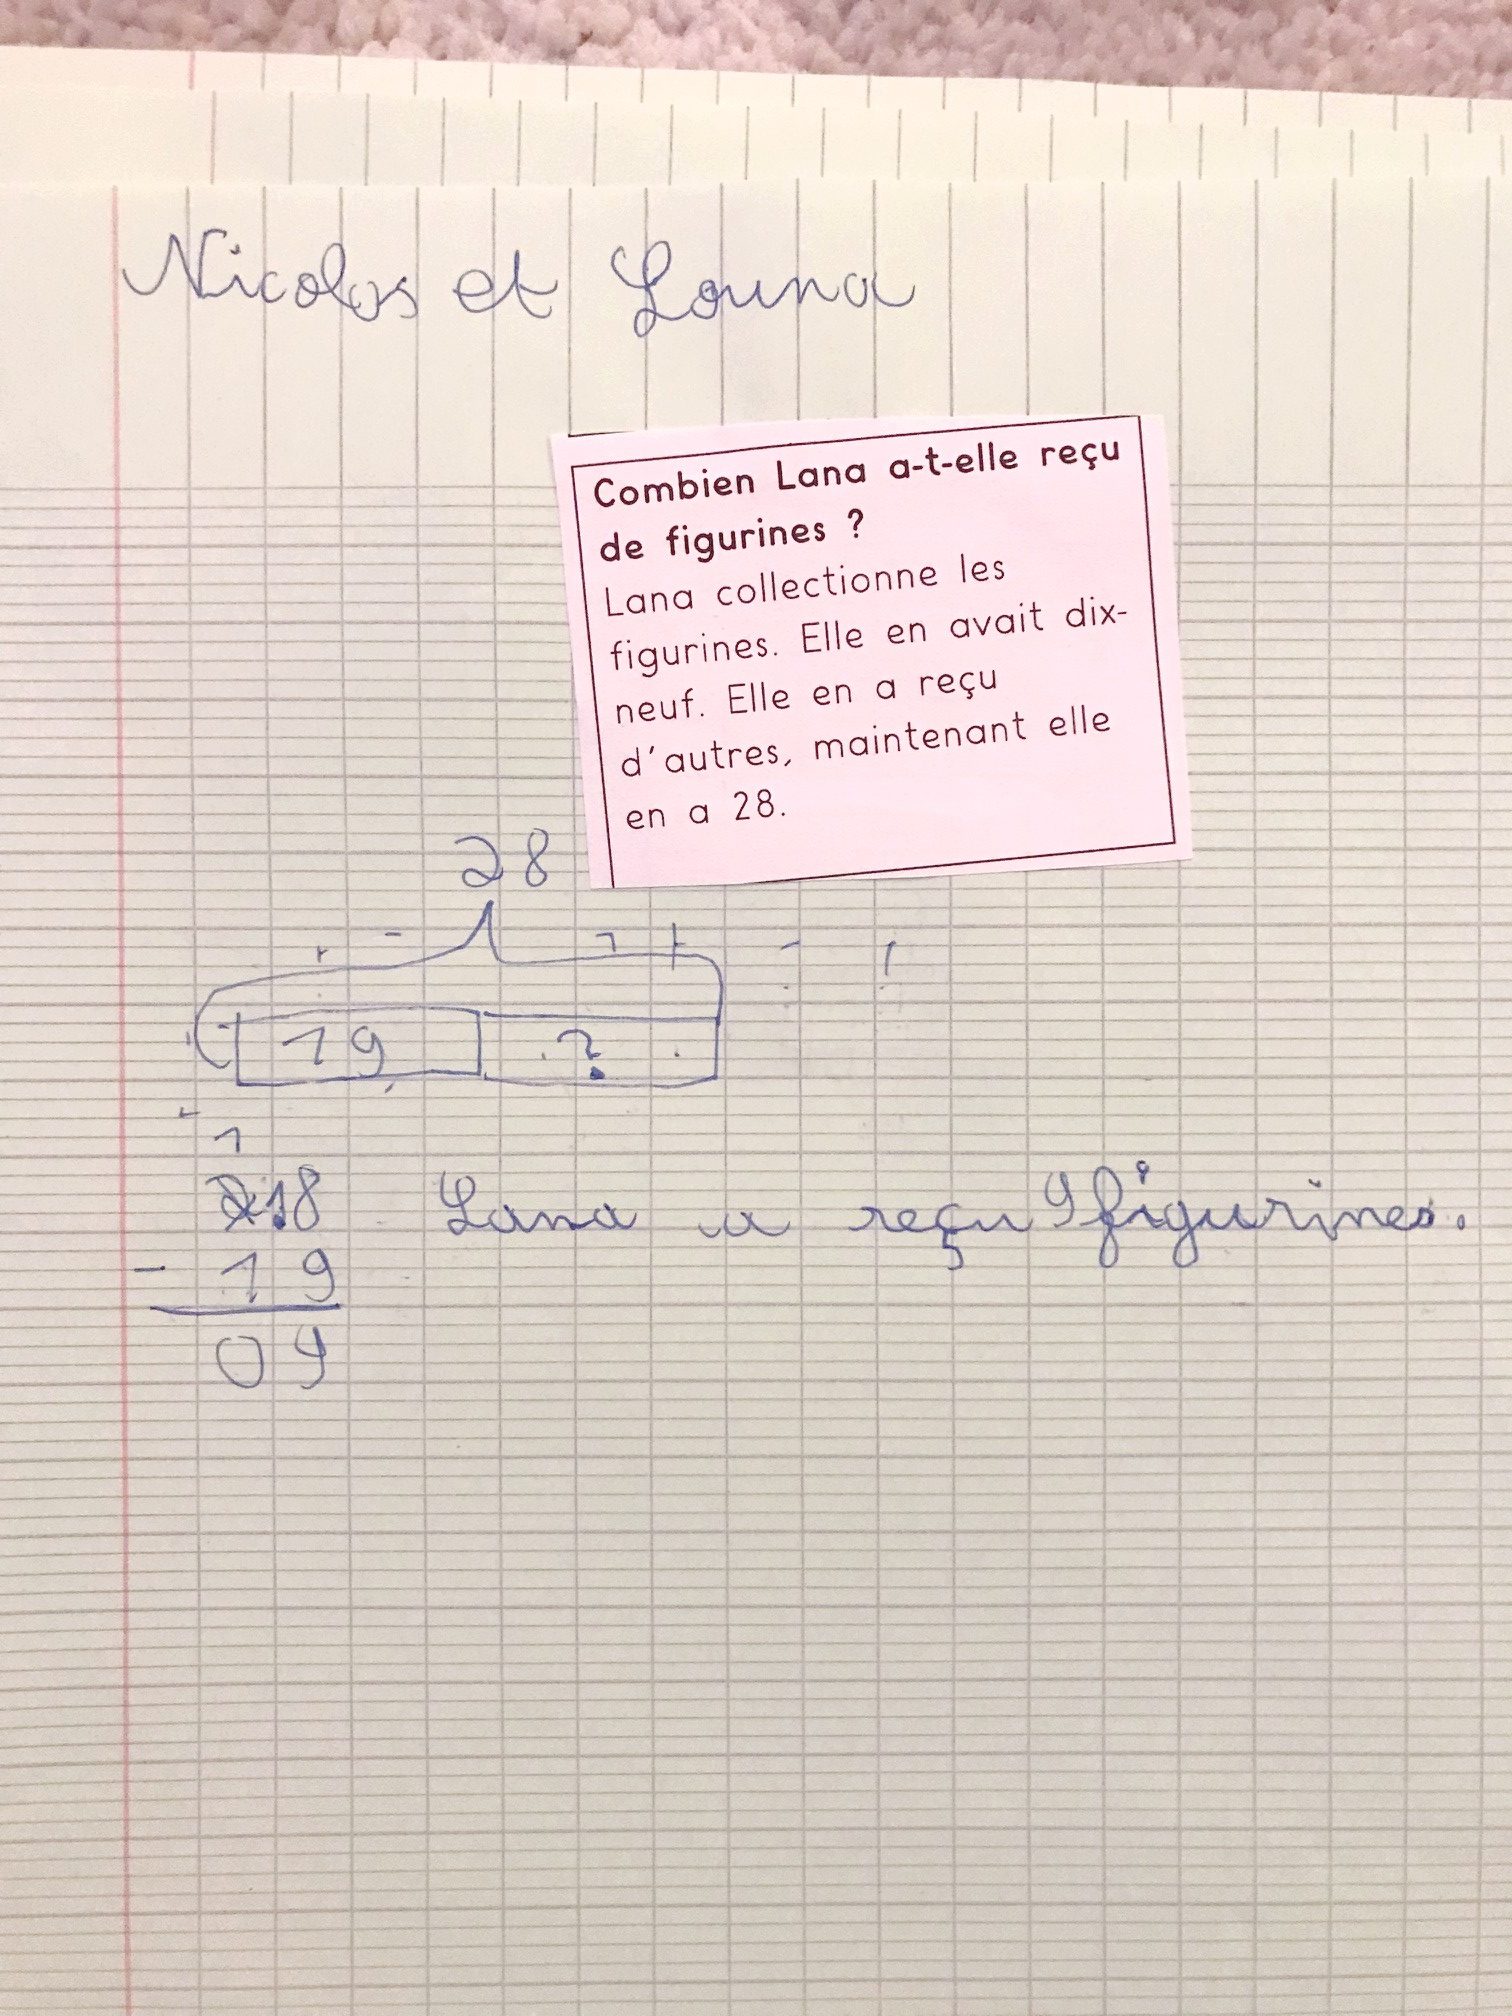 Nicolas et Louna
Combien Lana a-t-elle reçu
de figurines ?
Lana collectionne les
figurines. Elle en avait dix-
neuf. Elle en a reçu
d'autres, maintenant elle
en a 28.
28
19 ?
1
2 18 Lana a reçu 9 figurines.
- 19
09